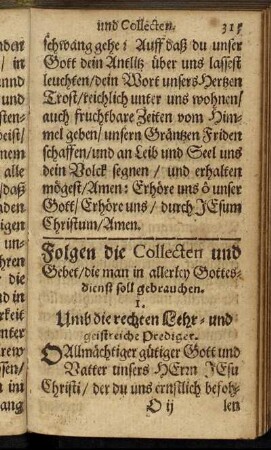 und Collecten. 315
schwang gehe: Auff daß du unser
Gott dein Antlitz über uns lassest
leuchten/dein Wort unsers Hertzen
Trost/reichlich unter uns wohnen/
auch fruchtbare Zeiten vom Him-
mel geben/unsern Gräntzen Friden
schaffen/und an Leib und Seel uns
dein Volck segnen / und erhalten
mögest/Amen: Erhöre uns ô unser
Gott/Erhöre uns / durch JEsum
Christum/Amen.
Folgen die Collecten und
Gebet/die man in allerley Gottes-
dienst soll gebrauchen.
1.
Umb die rechten Lehr- und
geistreiche Prediger.
O Allmächtiger gütiger Gott und
Vatter unsers HErrn JEsu
Christi/ der du uns ernstlich befoh-
O ij len